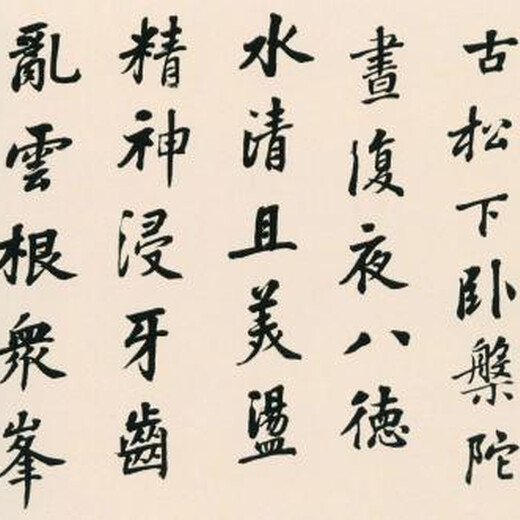 古松下卧盤陀
晝復夜八德
水清且美盪
精神浸牙齒
亂雲根衆峯